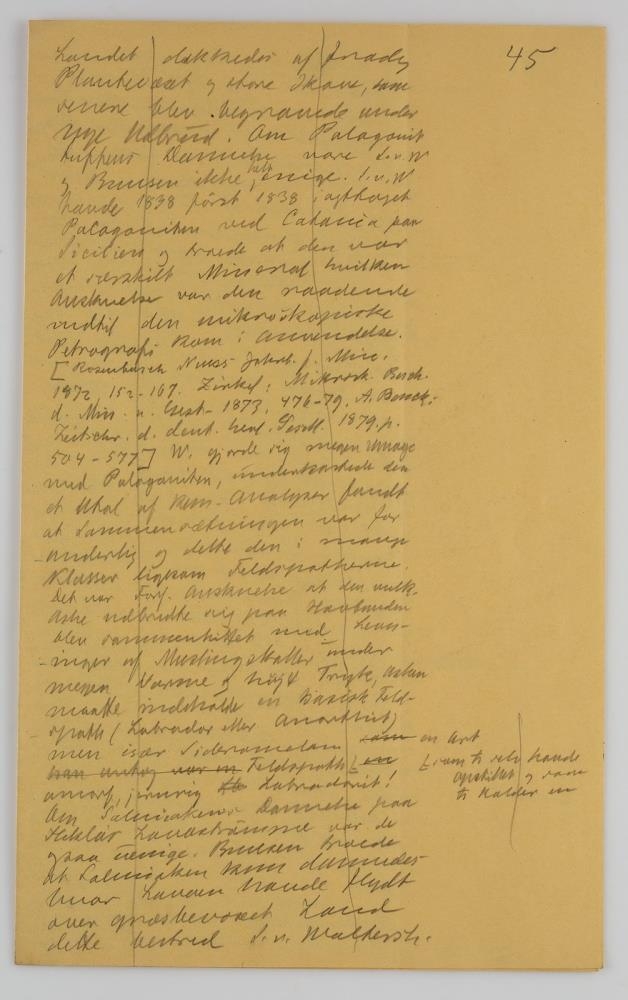 45
Landet dækkedes af frodig
Plantevæxt og store Skove, som
senere blev begravede under
nye Udbrud. Om Palagonit
tuffens Dannelse vare S. v. W
og Bunsen ikke helt enige. S. v. W
havde 1838 först 1838 iagttaget
Palagoniten ved Catania paa
Sicilien og troede at den var
et særskilt Mineral hvilken
Anskuelse var den raadende
indtil den mikroskopiske
Petrografi kom i anvendelse.
[Rosenbusch Neues Jahrb. f. Min.
1872, 152-167. Zirkel: Mikrosk. Besch.
d. Min. u. Gest. 1873, 476-79, A. Penck:
Zeitschr. d. deut. Geol. Gesell. 1879. p.
504-577] W. gjorde sig megen Umage
med Palagoniten, underkastede den
et Utal af kem. Analyser fandt
at Sammensætningen var for
anderlig og delte den i mange
Klasser ligesom Feldspatherne.
Det var Förf. Anskuelse at den vulk.
Aske udbredte sig paa Havbunden
blev sammenkittet med Levn-
inger af Muslingskaller under
megen Varme og höjt Tryk, Asken
maatte indeholde en basisk Feld-
spath (Labrador eller Anorthit)
men især Sideromelan som en Art
han antog var en Feldspath [en [som han selv havde
opstillet og som
han kalder en
amorf, jernrig Labradorit!
Om Salmiakens Dannelse paa
Heklas Lavaströmme var de
ogsaa uenige. Bunsen troede
at Salmiaken kun dannedes
hvor Lavaen havde flydt
over græsbevoxet Land
dette bestred S. v. Waltersh.